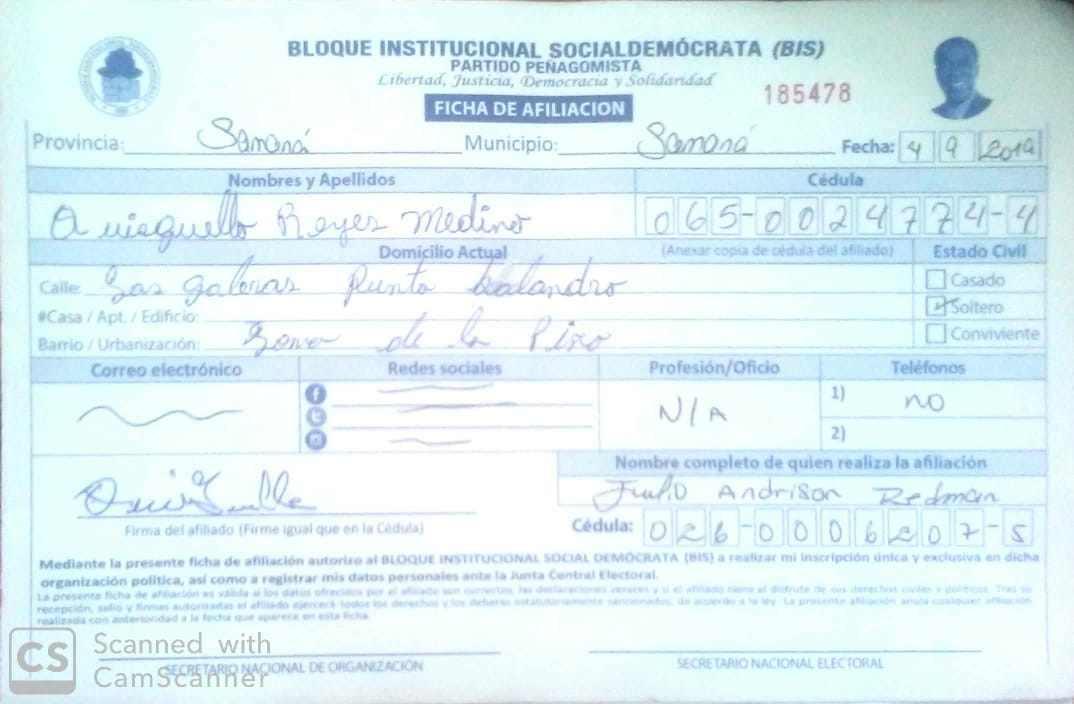 BLOQUE INSTITUCIONAL SOCIALDEMÓCRATA (BIS)
PARTIDO PEÑAGOMISTA
Libertad, Justicia, Democracia y Solidaridad
185478
FICHA DE AFILIACION
Provincia: Samaná Municipio: Samaná Fecha: 4 9 2019
Nombres y Apellidos Cédula
Reyes Medino 065-0024774-4
Domicilio Actual (Anexar copia de cédula del afiliado) Estado Civil
Calle: Las galeras Punta balandro Casado
#Casa / Apt. / Edificio: Soltero
Barrio / Urbanización: de la Conviviente
Correo electrónico Redes sociales Profesión/Oficio Teléfonos
N/A 1) NO
2)
Nombre completo de quien realiza la afiliación
Julio Andrison Redman
Firma del afiliado (Firme igual que en la Cédula) Cédula: 026-0006207-5
Mediante la presente ficha de afiliación autorizo al BLOQUE INSTITUCIONAL SOCIAL DEMÓCRATA (BIS) a realizar mi inscripción única y exclusiva en dicha
organización política, así como a registrar mis datos personales ante la Junta Central Electoral.
La presente ficha de afiliación es válida si los datos ofrecidos por el afiliado son correctos, las declaraciones veraces y si el afiliado tiene el disfrute de sus derechos civiles y políticos. Tras su
recepción, sello y firmas autorizadas el afiliado ejercerá todos los derechos y los deberes estatutariamente sancionados, de acuerdo a la ley. La presente afiliación anula cualquier afiliación
realizada con anterioridad a la fecha que aparece en esta ficha.
SECRETARIO NACIONAL DE ORGANIZACIÓN SECRETARIO NACIONAL ELECTORAL
CS Scanned with
CamScanner